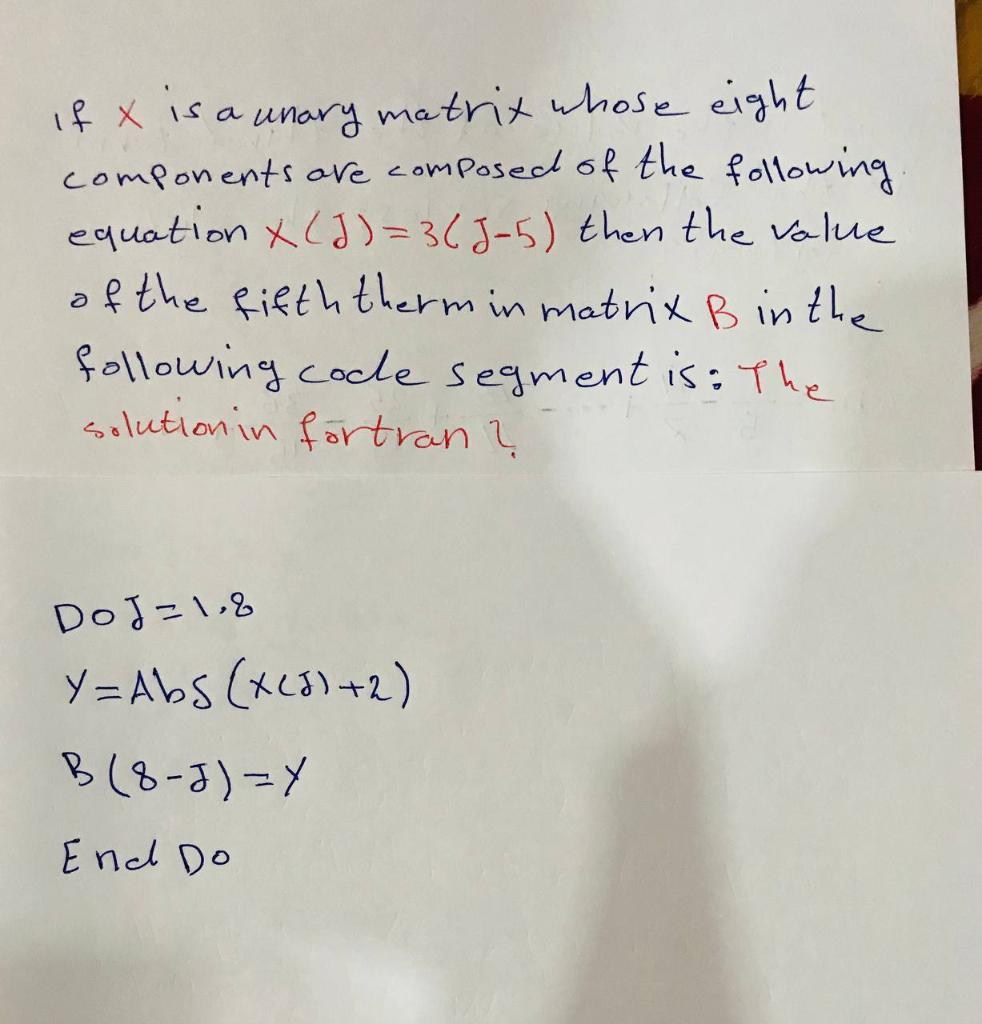 if X is a unary matrix whose eight
components are composed of the following
equation X(J)=3(J-5) then the value
of the fifth therm in matrix B in the
following code segment is: The
solution in fortran ?
Do J=1,8
Y=Abs(X(J)+2)
B(8-J)=Y
End Do